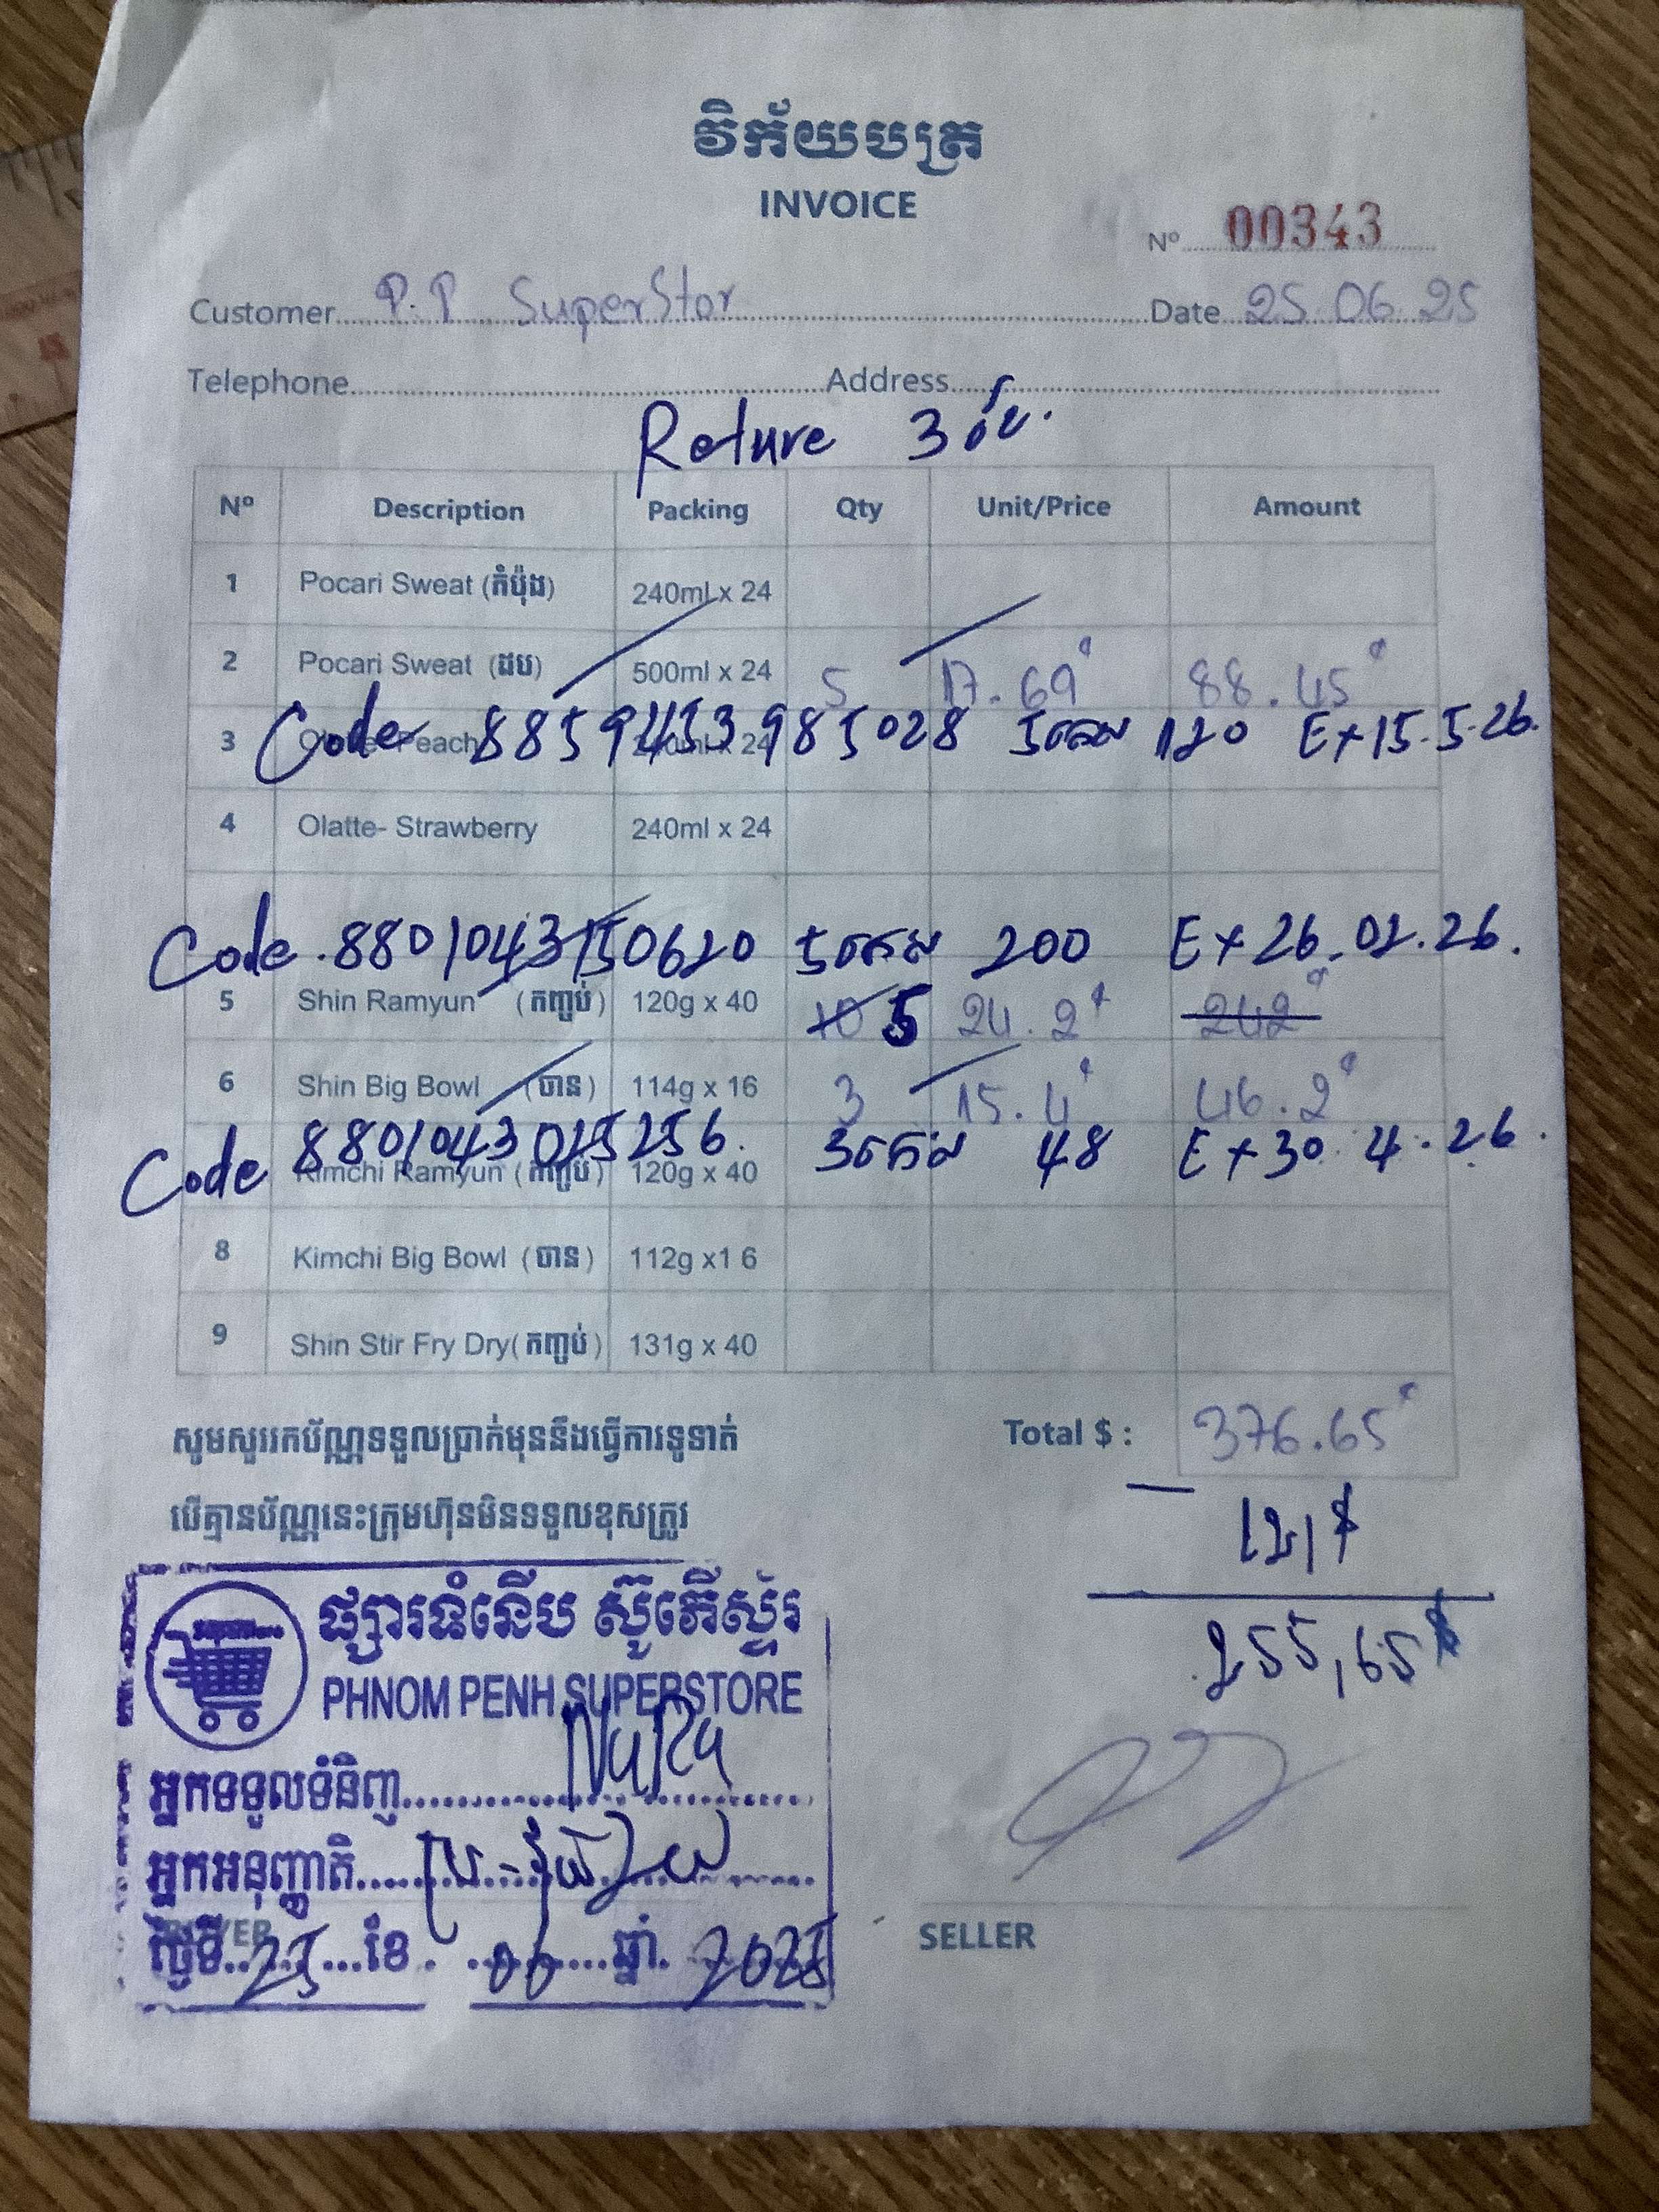 វិក័យបត្រ
INVOICE
Nº 00343
Customer P.P SuperStor Date 25.06.25
Telephone Address
Reture 3
Nº Description Packing Qty Unit/Price Amount
1 Pocari Sweat (កំប៉ុង) 240ml x 24
2 Pocari Sweat (ដប) 500ml x 24 5 17.69 88.45
3 Peach x 24
Code 8859453985028 5កេស 120 Ex 15.5.26.
4 Olatte- Strawberry 240ml x 24
Code .8801043150620 5កេស 200 Ex 26.02.26.
5 Shin Ramyun (កញ្ចប់) 120g x 40 10 5 24.2 242
6 Shin Big Bowl (ចាន) 114g x 16 3 15.4 46.2
Code 8801043025256. 3កេស 48 Ex 30.4.26.
Kimchi Ramyun (កញ្ចប់) 120g x 40
8 Kimchi Big Bowl (ចាន) 112g x1 6
9 Shin Stir Fry Dry(កញ្ចប់) 131g x 40
សូមសួររកប័ណ្ណទទួលប្រាក់មុននឹងធ្វើការទូទាត់ Total $ : 376.65
បើគ្មានប័ណ្ណនេះក្រុមហ៊ុនមិនទទួលខុសត្រូវ
121$
255,65$
ផ្សារទំនើប ស៊ូភើស្ទ័រ
PHNOM PENH SUPERSTORE
អ្នកទទួលទំនិញ NuRa
អ្នកអនុញ្ញាតិ
ថ្ងៃទី 25 ខែ 06 ឆ្នាំ 2025
SELLER